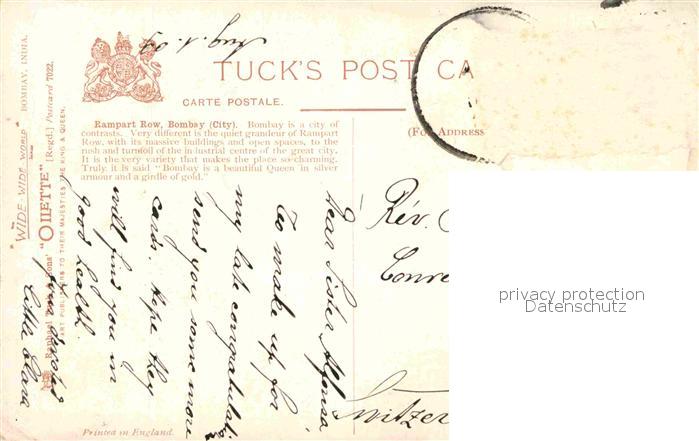 "WIDE-WIDE-WORLD" BOMBAY, INDIA.
"OILETTE" [Regd.] Postcard 7022.
ART PUBLISHERS TO THEIR MAJESTIES THE KING & QUEEN.
Aug. 1. 09
TUCK'S POST CA
CARTE POSTALE.
(FOR ADDRESS
Rampart Row, Bombay (City). Bombay is a city of
contrasts. Very different is the quiet grandeur of Rampart
Row, with its massive buildings and open spaces, to the
rush and turmoil of the industrial centre of the great city.
It is the very variety that makes the place so charming.
Truly it is said "Bombay is a beautiful Queen in silver
armour and a girdle of gold."
Dear Sister Alfonsa
to make up for
my late congratulati
send you some more
cards. Hope they
will find you in
good health.
Little Clara
Rev.
Conve
Switzer
privacy protection
Datenschutz
Printed in England.